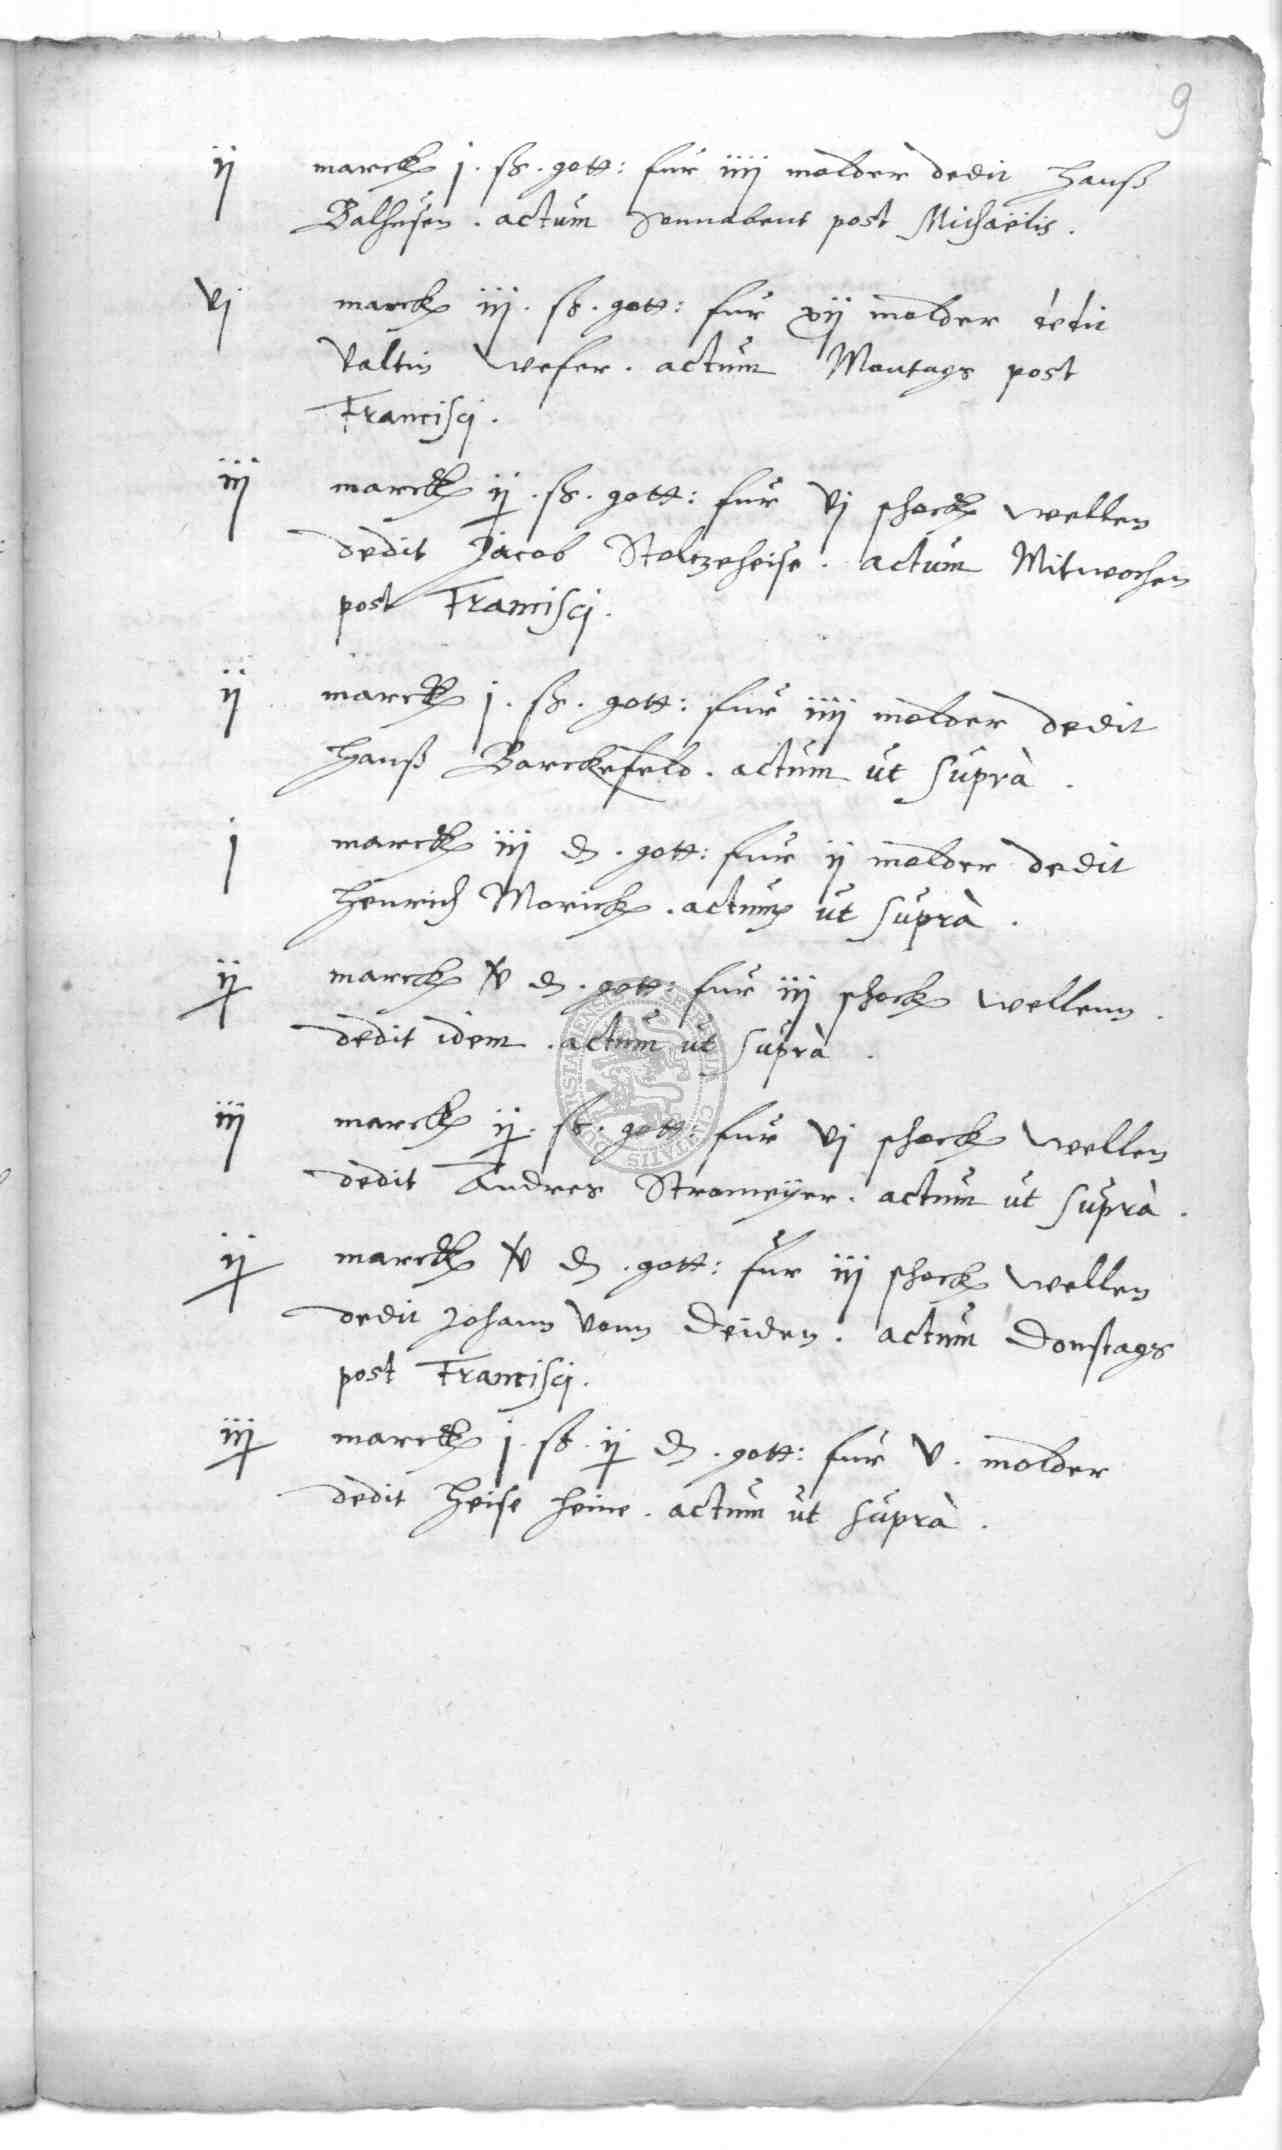 9
ij marck j. ß. gott: fur iiij molder dedit Hanß
Balhusen. actum Sonnabent post Michaëlis.
vj marck iij. ß. gott: fur xij molder dedit
Valtin Weser. actum Montags post
Francisci.
iij marck ij. ß. gott: fur vj schock wellen
dedit Jacob Stoltzeheise. actum Mitwochen
post Francisci.
ij marck j. ß. gott: fur iiij molder dedit
Hanß Barckefeld. actum ut suprà.
j marck iij d. gott: fur ij molder dedit
Henrich Morick. actum ut suprà.
ij marck v d. gott: fur iij schock wellenn.
dedit idem. actum ut suprà.
iij marck ij. ß. gott: fur vj schock wellen
dedit Andres Stromeyer. actum ut suprà.
ij marck v d. gott: fur iij schock wellen
dedit Johann vonn Deiden. actum Donstags
post Francisci.
iij marck j. ß. ij d. gott: fur v. molder
dedit Heise Heine. actum ut suprà.